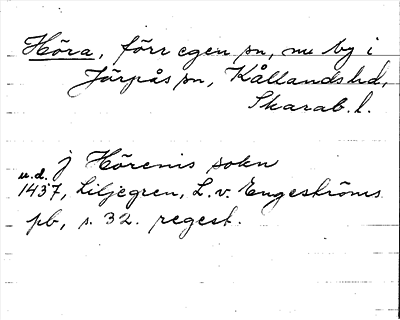 Höra, förr egen sn, nu by i
Järpås sn, Kållandshd,
Skarab. l.
j Hörenis sokn
u.d.
1437, Liljegren, L. v. Engeströms
pb, s. 32. regest.